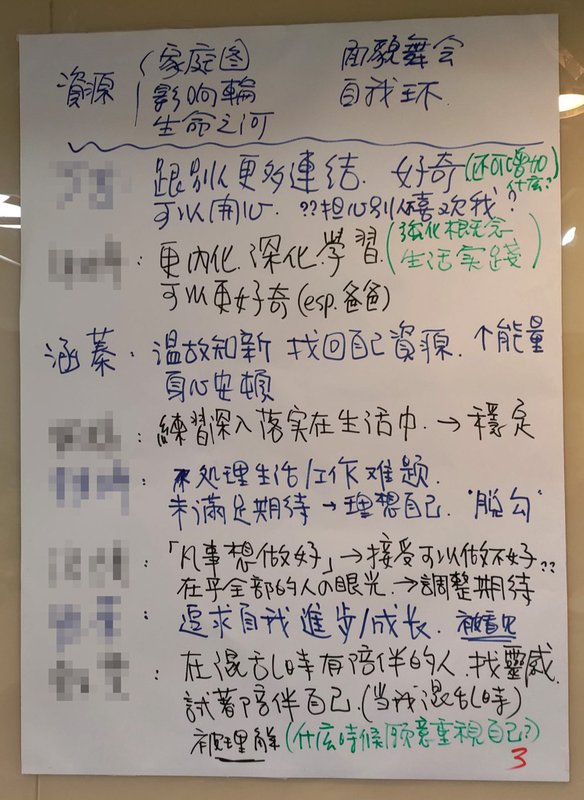 資源 家庭图 面貌舞会
影响輪 自我环
生命之河
跟別人更多連結. 好奇 (还可嚐加什么?)
可以開心. ??担心別人喜欢我?
: 更內化. 深化學習. (強化根念 生活实踐)
可以更好奇 (esp. 爸爸)
涵蓁: 温故知新 找回自己資源. ↑能量
身心安頓
: 練習深入落实在生活中. → 穩定
: 处理生活/工作难题.
未滿足期待 → 理想自己. "脱勾"
: 「凡事想做好」→ 接受可以做不好??
在乎全部的人の眼光. → 調整期待
: 追求自我進步/成长. 被看見
: 在混乱時有陪伴的人. 找靈感.
試著陪伴自己. (当我混乱時)
被理解 (什么時候願意重視自己?)
3